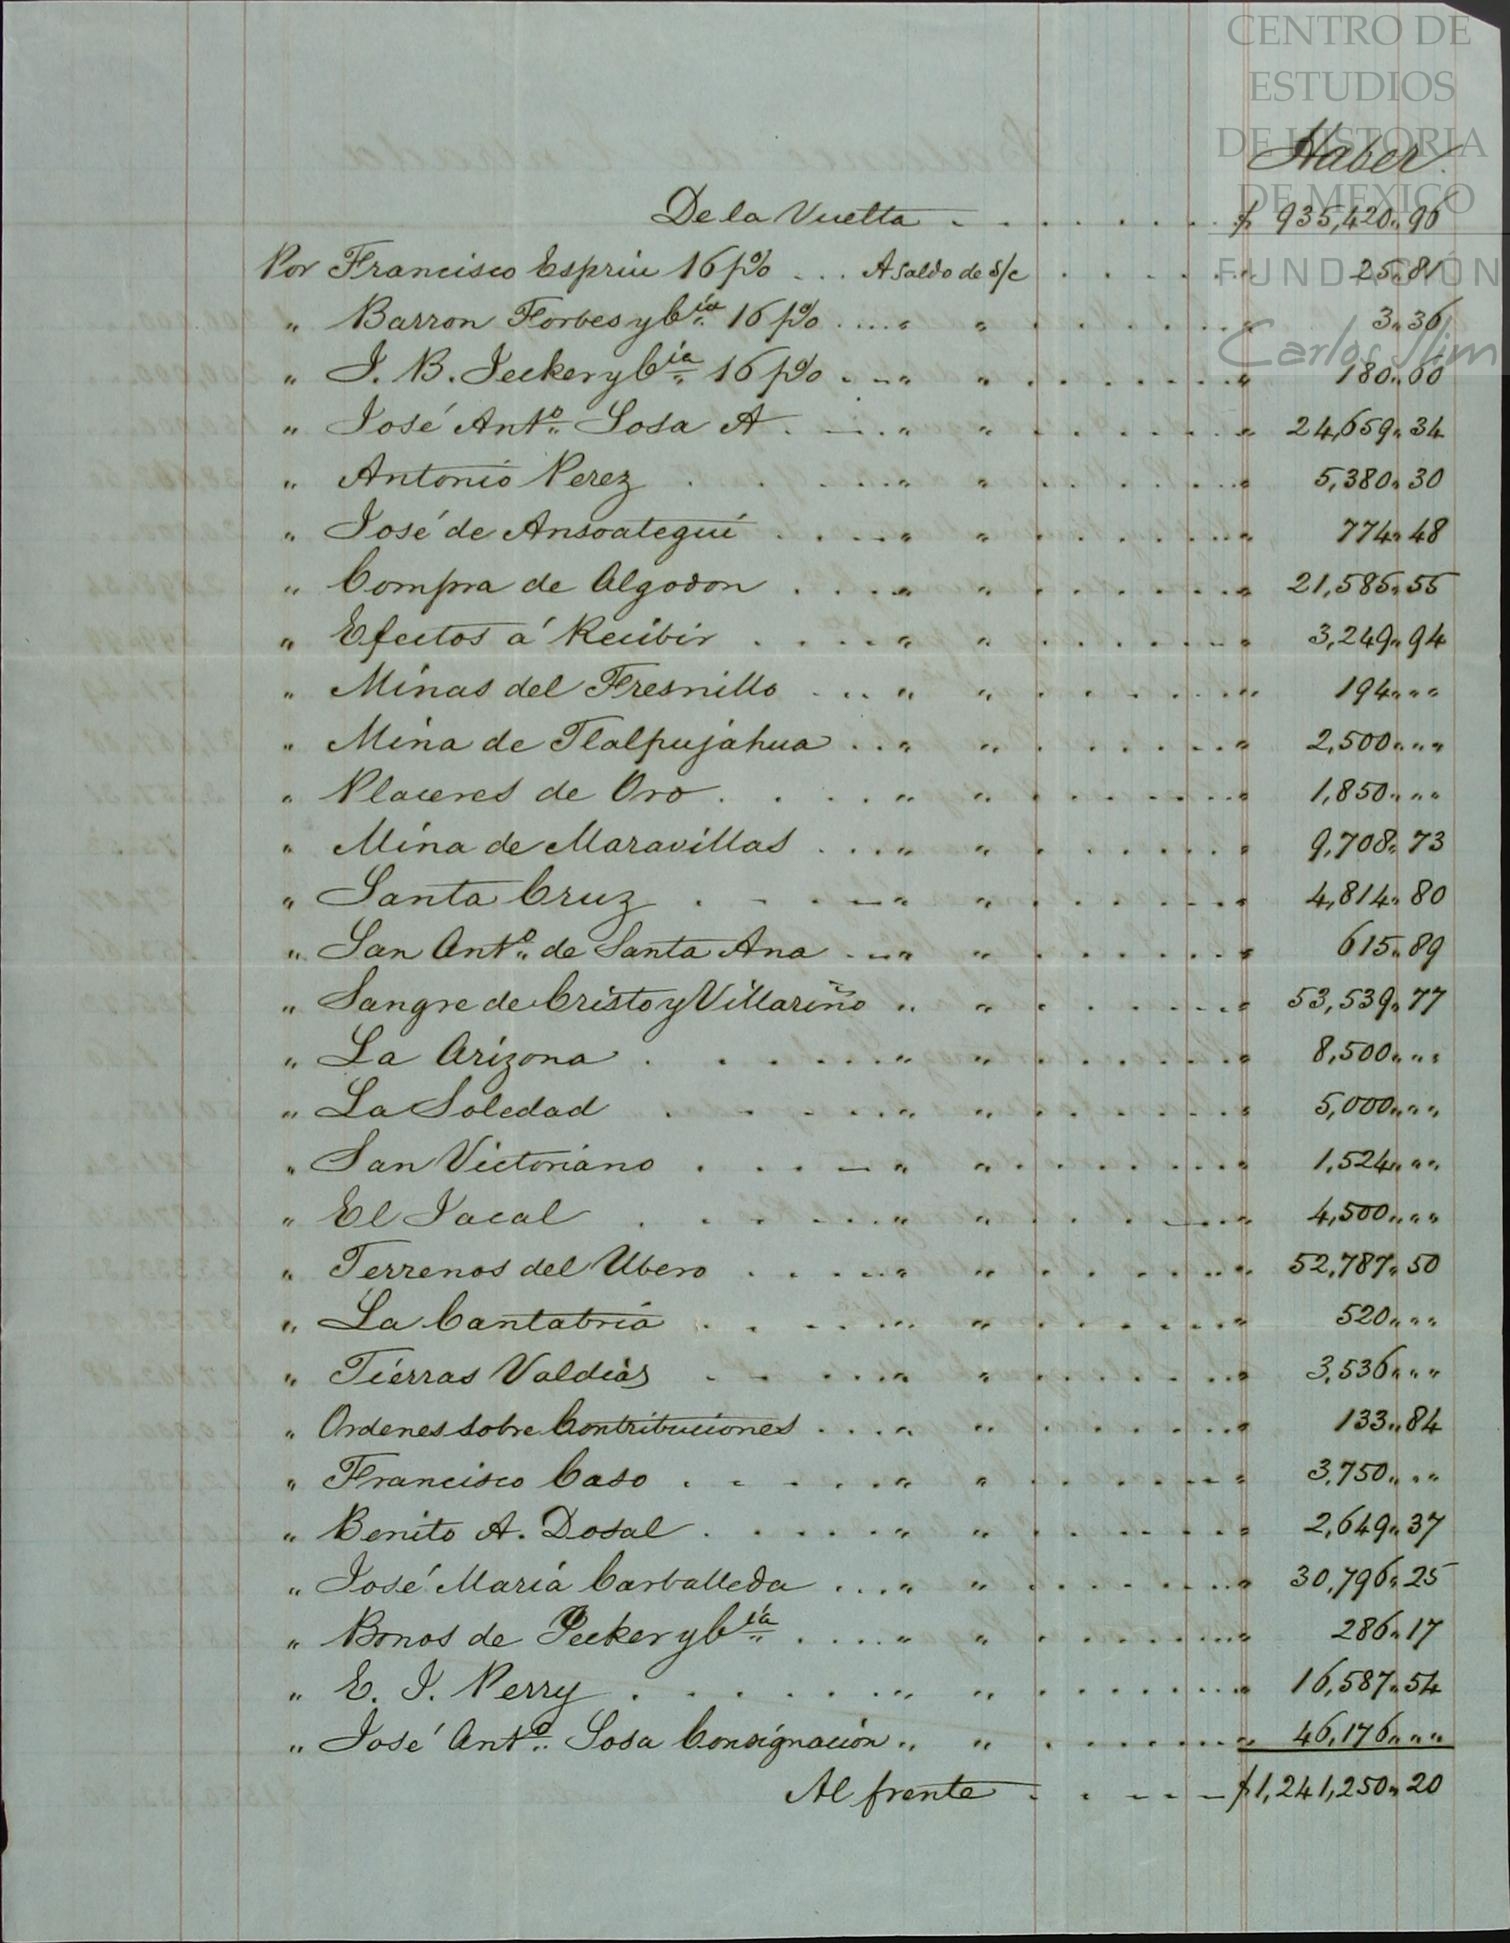 CENTRO DE
ESTUDIOS
DE HISTORIA
DE MEXICO
FUNDACIÓN
Carlos Slim
Haber.
De la Vuelta - . . . . . . $ 935,420„96
Por Francisco Espriu 16 p% . . . A saldo de s/c . . . . . „ 25„81
„ Barron Forbes y Cía. 16 p% . . . . „ „ . . . . . . „ 3„36
„ J. B. Jecker y Cía. 16 p% . - - „ „ . . . . . . „ 180„60
„ José Anto. Sosa A . - . „ „ . . . . . . „ 24,659„34
„ Antonio Perez . . . . . „ „ . . . . . . „ 5,380„30
„ José de Ansoategui . . . . „ „ . . . . . . „ 774„48
„ Compra de Algodon . . . . „ „ . . . . . . „ 21,585„55
„ Efectos á Recibir . . . . „ „ . . . . . . „ 3,249„94
„ Minas del Fresnillo . . . „ „ . . . . . . „ 194„„„
„ Mina de Tlalpujahua . . „ „ . . . . . . „ 2,500„„„
„ Placeres de Oro . . . . „ „ . . . . . . „ 1,850„„„
„ Mina de Maravillas . . . „ „ . . . . . . „ 9,708„73
„ Santa Cruz . - . - „ „ . . . . . . „ 4,814„80
„ San Anto. de Santa Ana . - „ „ . . . . . . „ 615„89
„ Sangre de Cristo y Villariño „ „ . . . . . . „ 53,539„77
„ La Arizona . . . . . „ „ . . . . . . „ 8,500„„„
„ La Soledad . . - . . „ „ . . . . . . „ 5,000„„„
„ San Victoriano . . . - „ „ . . . . . . „ 1,524„„„
„ El Jacal . . . . . „ „ . . . . . . „ 4,500„„„
„ Terrenos del Ubero . . . . „ „ . . . . . . „ 52,787„50
„ La Cantabria . . . . „ „ . . . . . . „ 520„„„
„ Tierras Valdias . - . . „ „ . . . . . . „ 3,536„„„
„ Ordenes sobre Contribuciones . . . „ „ . . . . . . „ 133„84
„ Francisco Caso . . . . . „ „ . . . . . . „ 3,750„„„
„ Benito A. Dosal . . . . . „ „ . . . . . . „ 2,649„37
„ José Maria Carballeda . . . „ „ . . . . . . „ 30,796„25
„ Bonos de Jecker y Cía. . . . . „ „ . . . . . . „ 286„17
„ E. J. Perry . . . . . . „ „ . . . . . . „ 16,587„54
„ José Anto. Sosa Consignación „ „ . . . . . . „ 46,176„„„
Al frente . . - - - $1,241,250„20